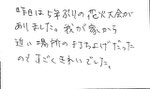 昨日は5年ぶりの花火大会が
ありました。我が家から
近い場所の打ちよげだった
のですごくきれいでした。